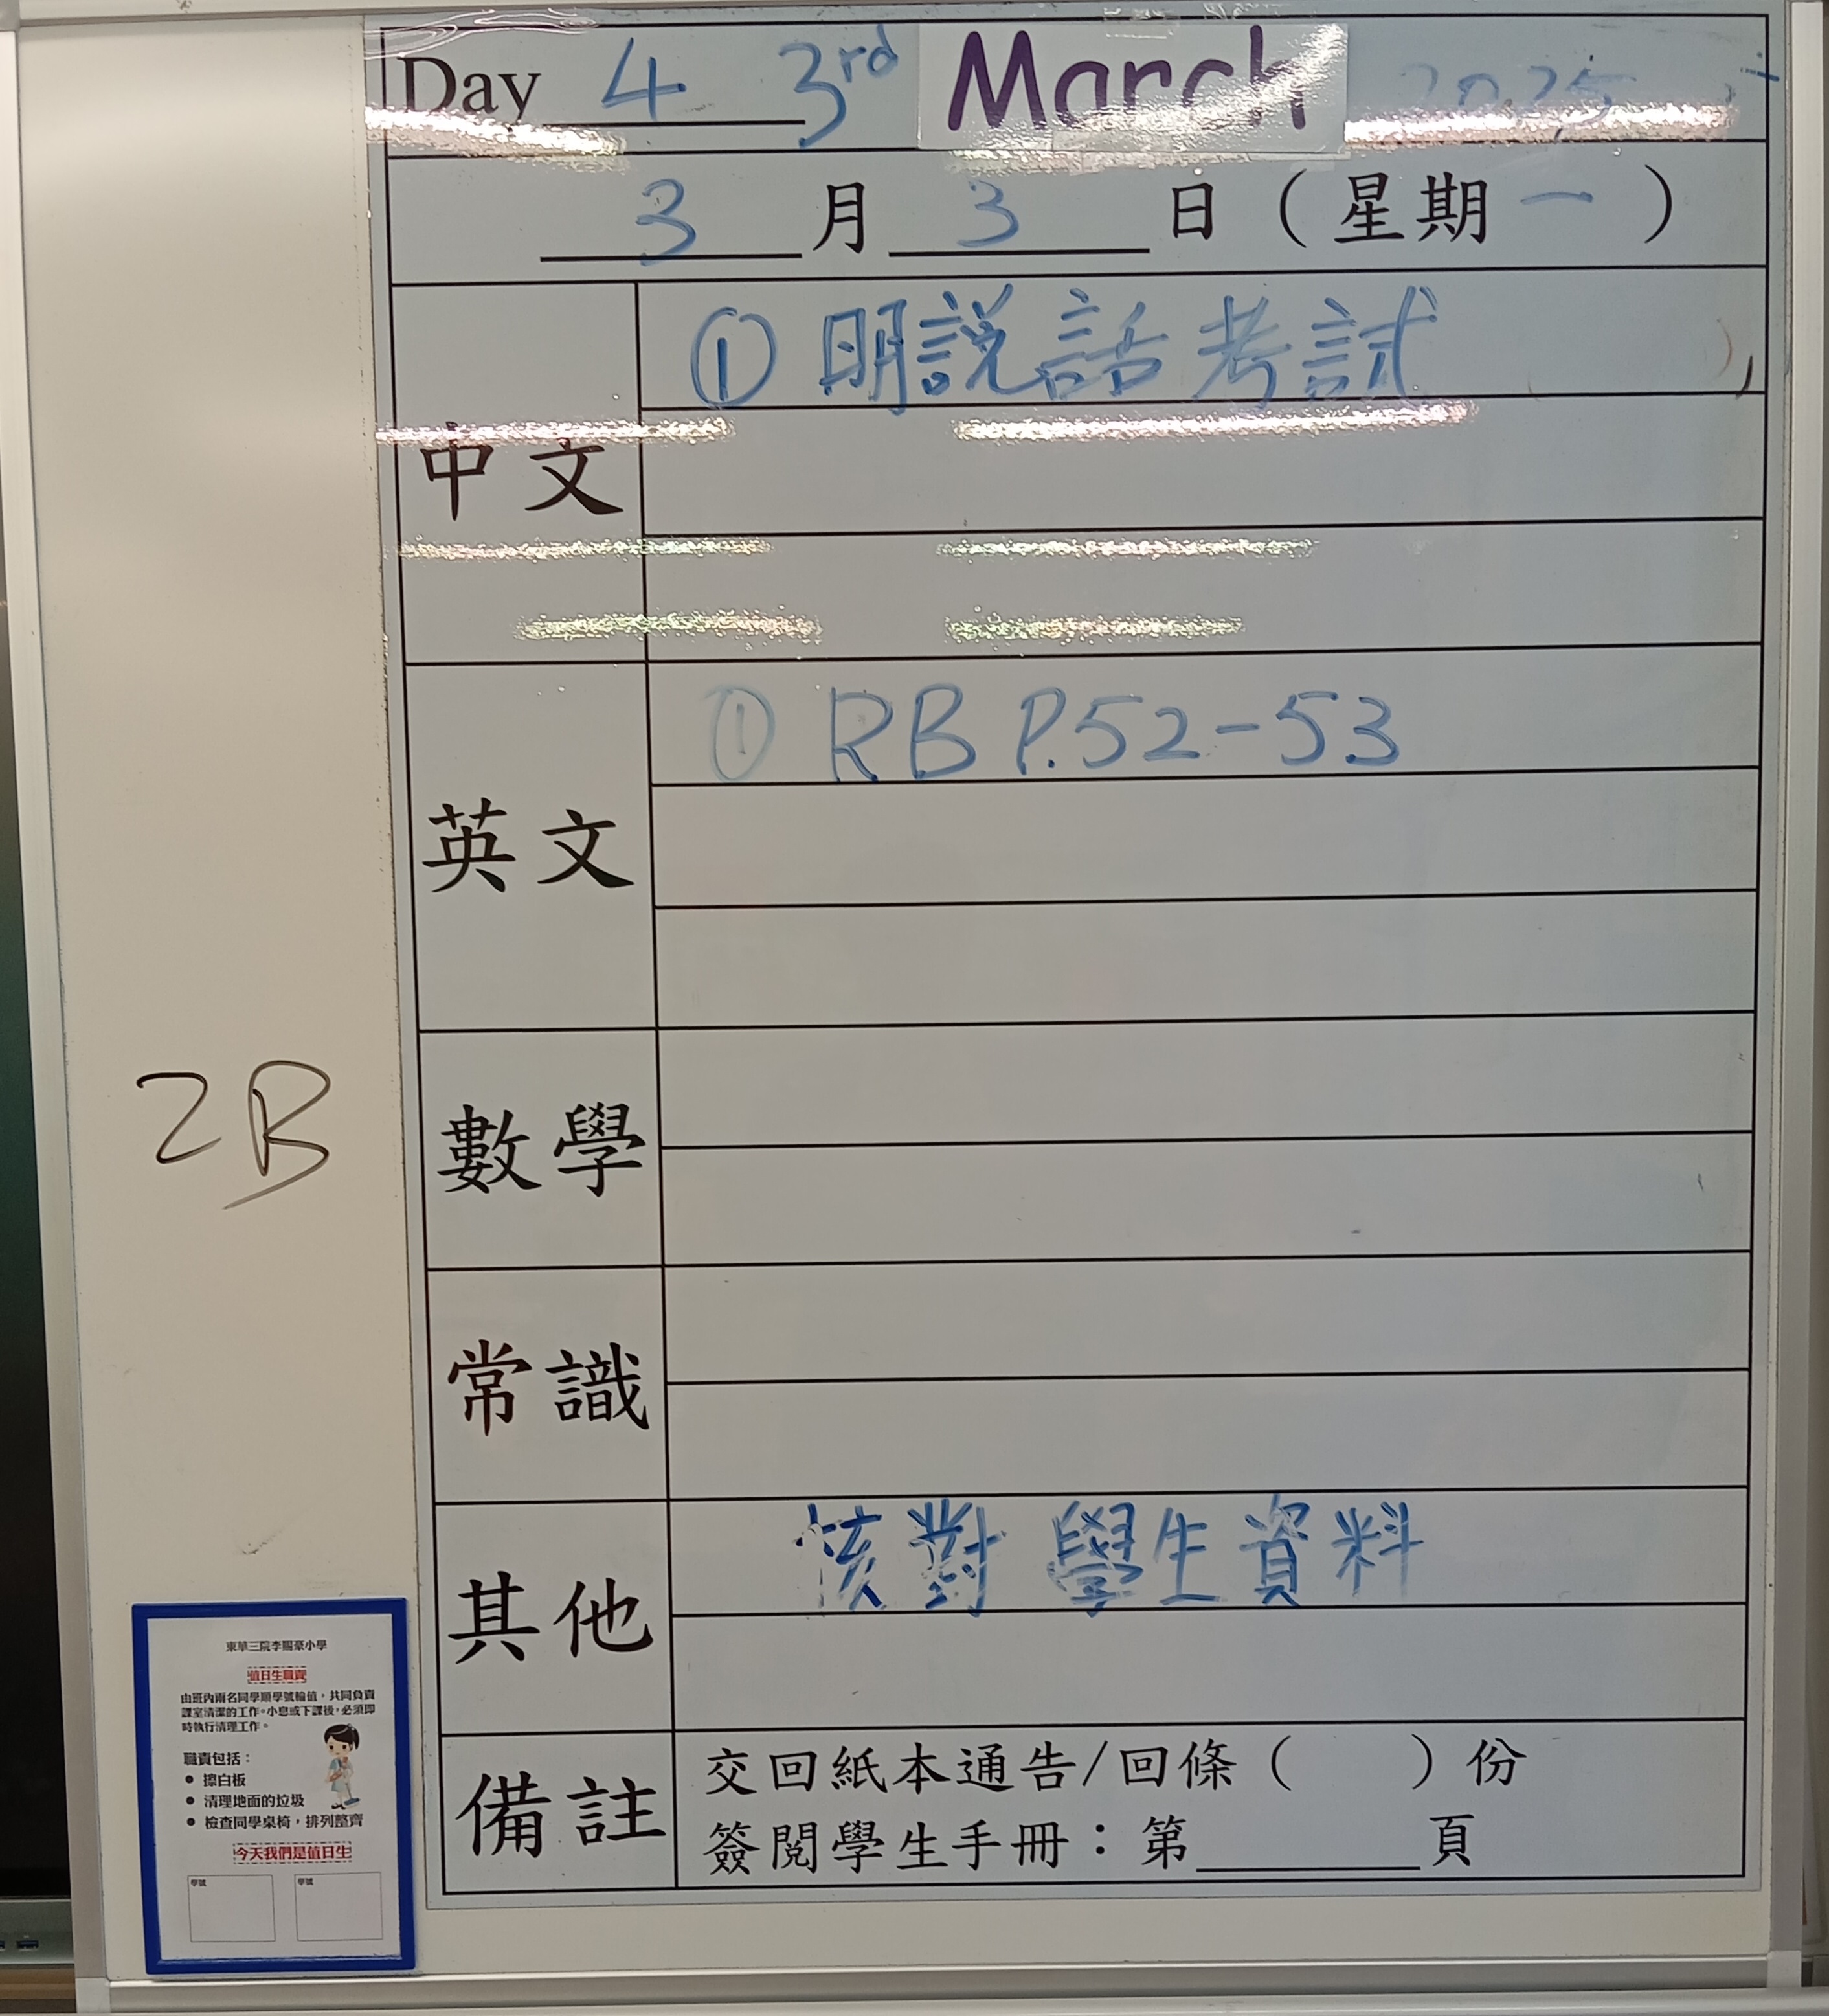 Day 4 3rd March 2025
3 月 3 日 ( 星期 一 )
中文
① 明說話考試
英文
① RB P.52-53
數學
2B
常識
其他
核對學生資料
備註
交回紙本通告/回條 ( ) 份
簽閱學生手冊：第 頁
東華三院李賜豪小學
值日生職責
由班內兩名同學順學號輪值，共同負責
課室清潔的工作。小息或下課後，必須即
時執行清理工作。
職責包括：
● 擦白板
● 清理地面的垃圾
● 檢查同學桌椅，排列整齊
今天我們是值日生
學號 學號